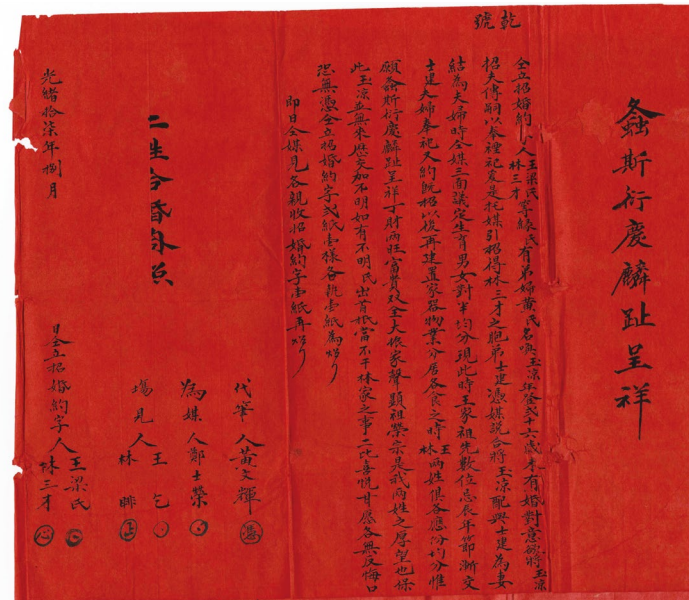 乾號
螽斯衍慶麟趾呈祥
仝立招婚約人王梁氏林三才等緣氏有弟婦黃氏名喚玉涼年登弍十六歲未有婚對意欲將玉涼
招夫傳嗣以奉禋祀爰是托媒引招得林三才之胞弟士建憑媒說合將玉涼配與士建為妻
結為夫婦時仝媒三面議定生育男女對半均分現此時王家祖先數位忌辰年節漸交
士建夫婦奉祀又約既招以後再建置家器物業分居各食之時王林兩姓俱各應份均分惟
願螽斯衍慶麟趾呈祥丁財兩旺富貴双全大振家聲顯祖榮宗是我兩姓之厚望也保
此玉涼並無來歷交加不明如有不明氏出首抵當不干林家之事二比喜悅甘愿各無反悔口
恐無憑仝立招婚約字弍紙壹樣各執壹紙為炤
即日仝媒見各親收招婚約字壹紙再炤
代筆人黃文輝
為媒人鄭士榮
塲見人王乞林
日仝立招婚約字人王梁氏林三才
二姓合婚為照
光緒拾柒年捌月